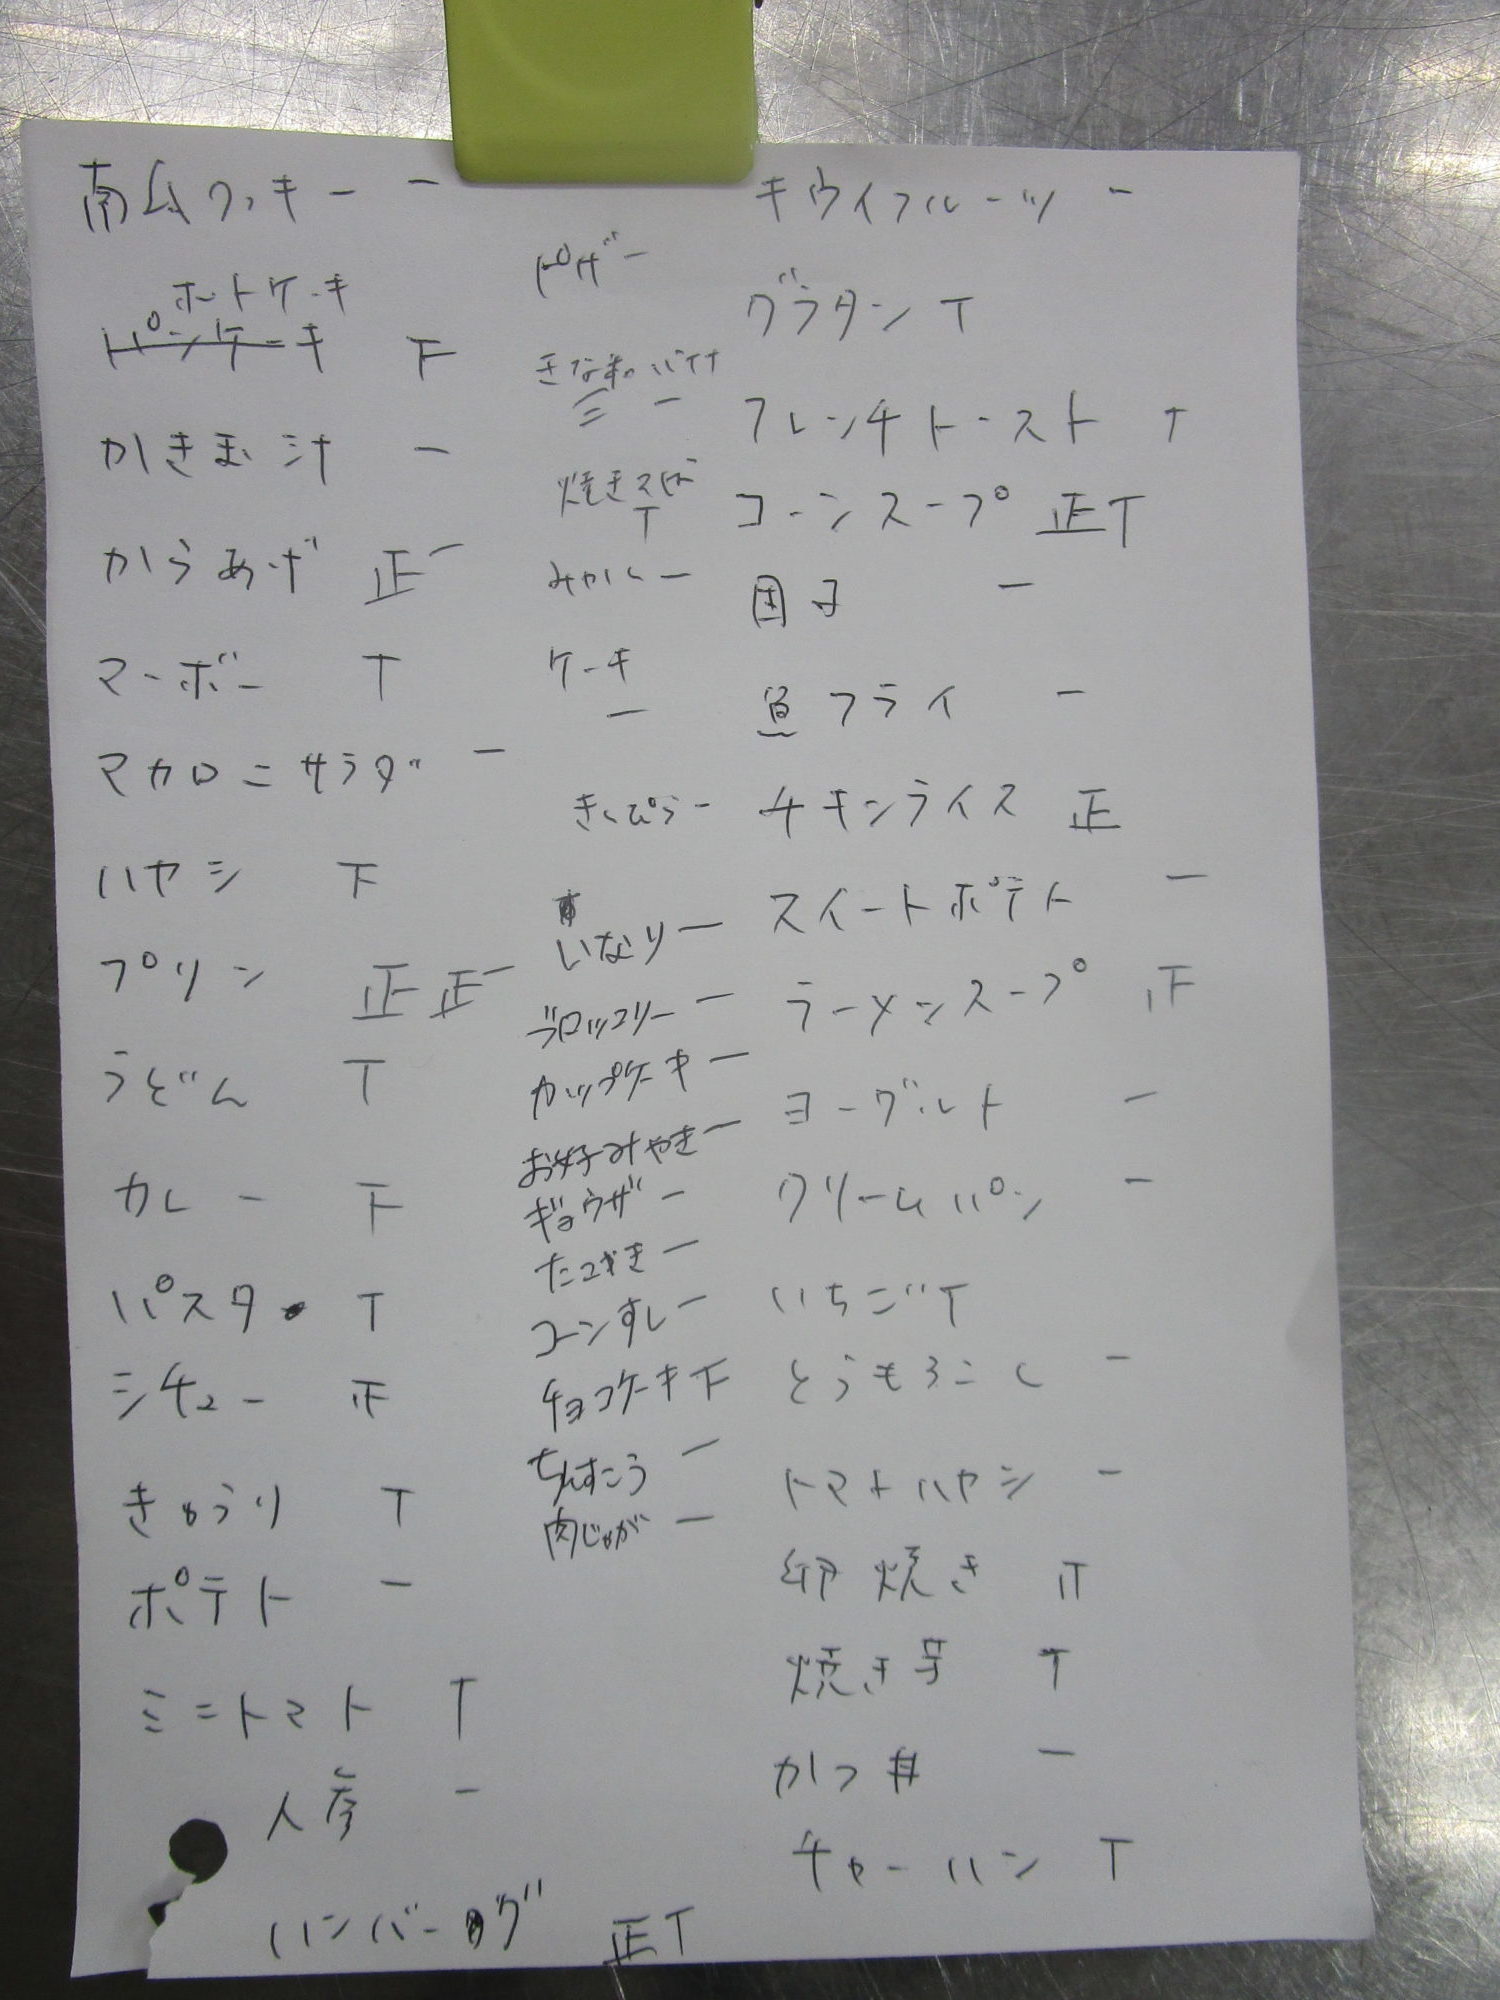 南瓜クッキー 一
ホットケーキ
パンケーキ 下
かきまタ汁 一
からあげ 正一
マーボー T
マカロニサラダ 一
ハヤシ 下
プリン 正正一
うどん T
カレー 下
パスタ T
シチュー 正
きゅうり T
ポテト 一
ミニトマト T
人参 一
ハンバーグ 正T
ピザ 一
きな粉
一
焼きそば
T
みかん 一
ケーキ
一
きんぴら 一
いなり 一
ブロッコリー 一
カップケーキ 一
お好みやき 一
ギョウザ 一
たこやき 一
コーンすし 一
チョコケーキ 下
ちんすこう 一
肉じゃが 一
キウイフルーツ 一
グラタン T
フレンチトースト T
コーンスープ 正T
団子 一
魚フライ 一
チキンライス 正
スイートポテト 一
ラーメンスープ 正
ヨーグルト 一
クリームパン 一
いちご T
とうもろこし 一
トマトハヤシ 一
卵焼き 正
焼き芋 T
かつ丼 一
チャーハン T